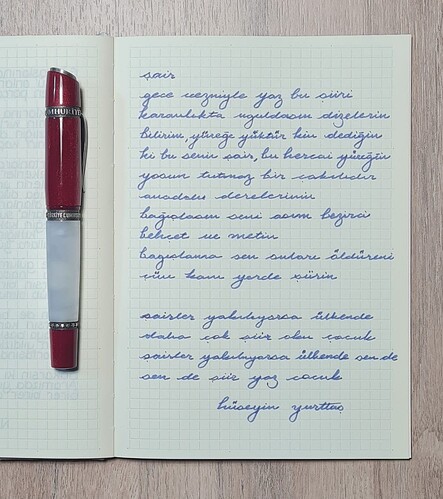 şair
gece vezniyle yaz bu şiiri
karanlıkta uğuldasın dizelerin
bilirim, yüreğe yüktür kin dediğin
ki bu senin şair, bu hercai yüreğin
yosun tutmaz bir çakılıdır
anadolu derelerinin
bağışlasan seni asım bezirci
behçet ve metin
bağışlama sen onları öldüreni
çün kanı yerde şiirin
şairler yakılıyorsa ülkende
daha çok şiir oku çocuk
şairler yakılıyorsa ülkende sen de
sen de şiir yaz çocuk
hüseyin yurttaş